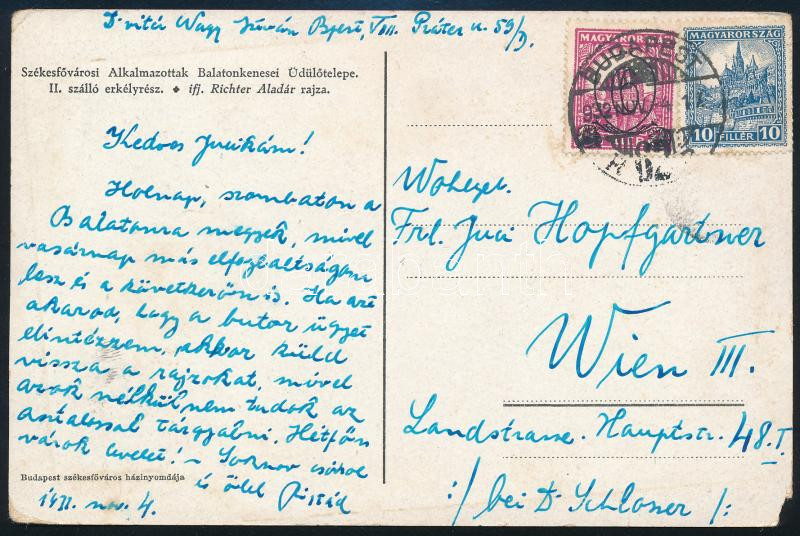 D. vitéz Nagy István Bpest, VIII. Práter u. 59/D.
Székesfővárosi Alkalmazottak Balatonkenesei Üdülőtelepe.
II. szálló erkélyrész. ◆ ifj. Richter Aladár rajza.
Kedves Jucikám!
Holnap, szombaton a
Balatonra megyek, mivel
vasárnap más elfoglaltságom
lesz és a következőn is. Ha azt
akarod, hogy a butor ügyet
elintézzem, akkor küld
vissza a rajzokat, mivel
azok nélkül nem tudok az
asztalossal tárgyalni. Hétfőn
várok levelet! – Sokszor csókol
és ölel Pistád
Budapest székesfőváros házinyomdája
nov. 4.
MAGYARORSZÁG
MAGYARORSZÁG
10 FILLÉR 10
BUDAPEST
Wohlgeb.
Frl. Juci Hopfgartner
Wien III.
Landstrasse. Hauptstr. 48. I.
:/ bei D. Schloner /: